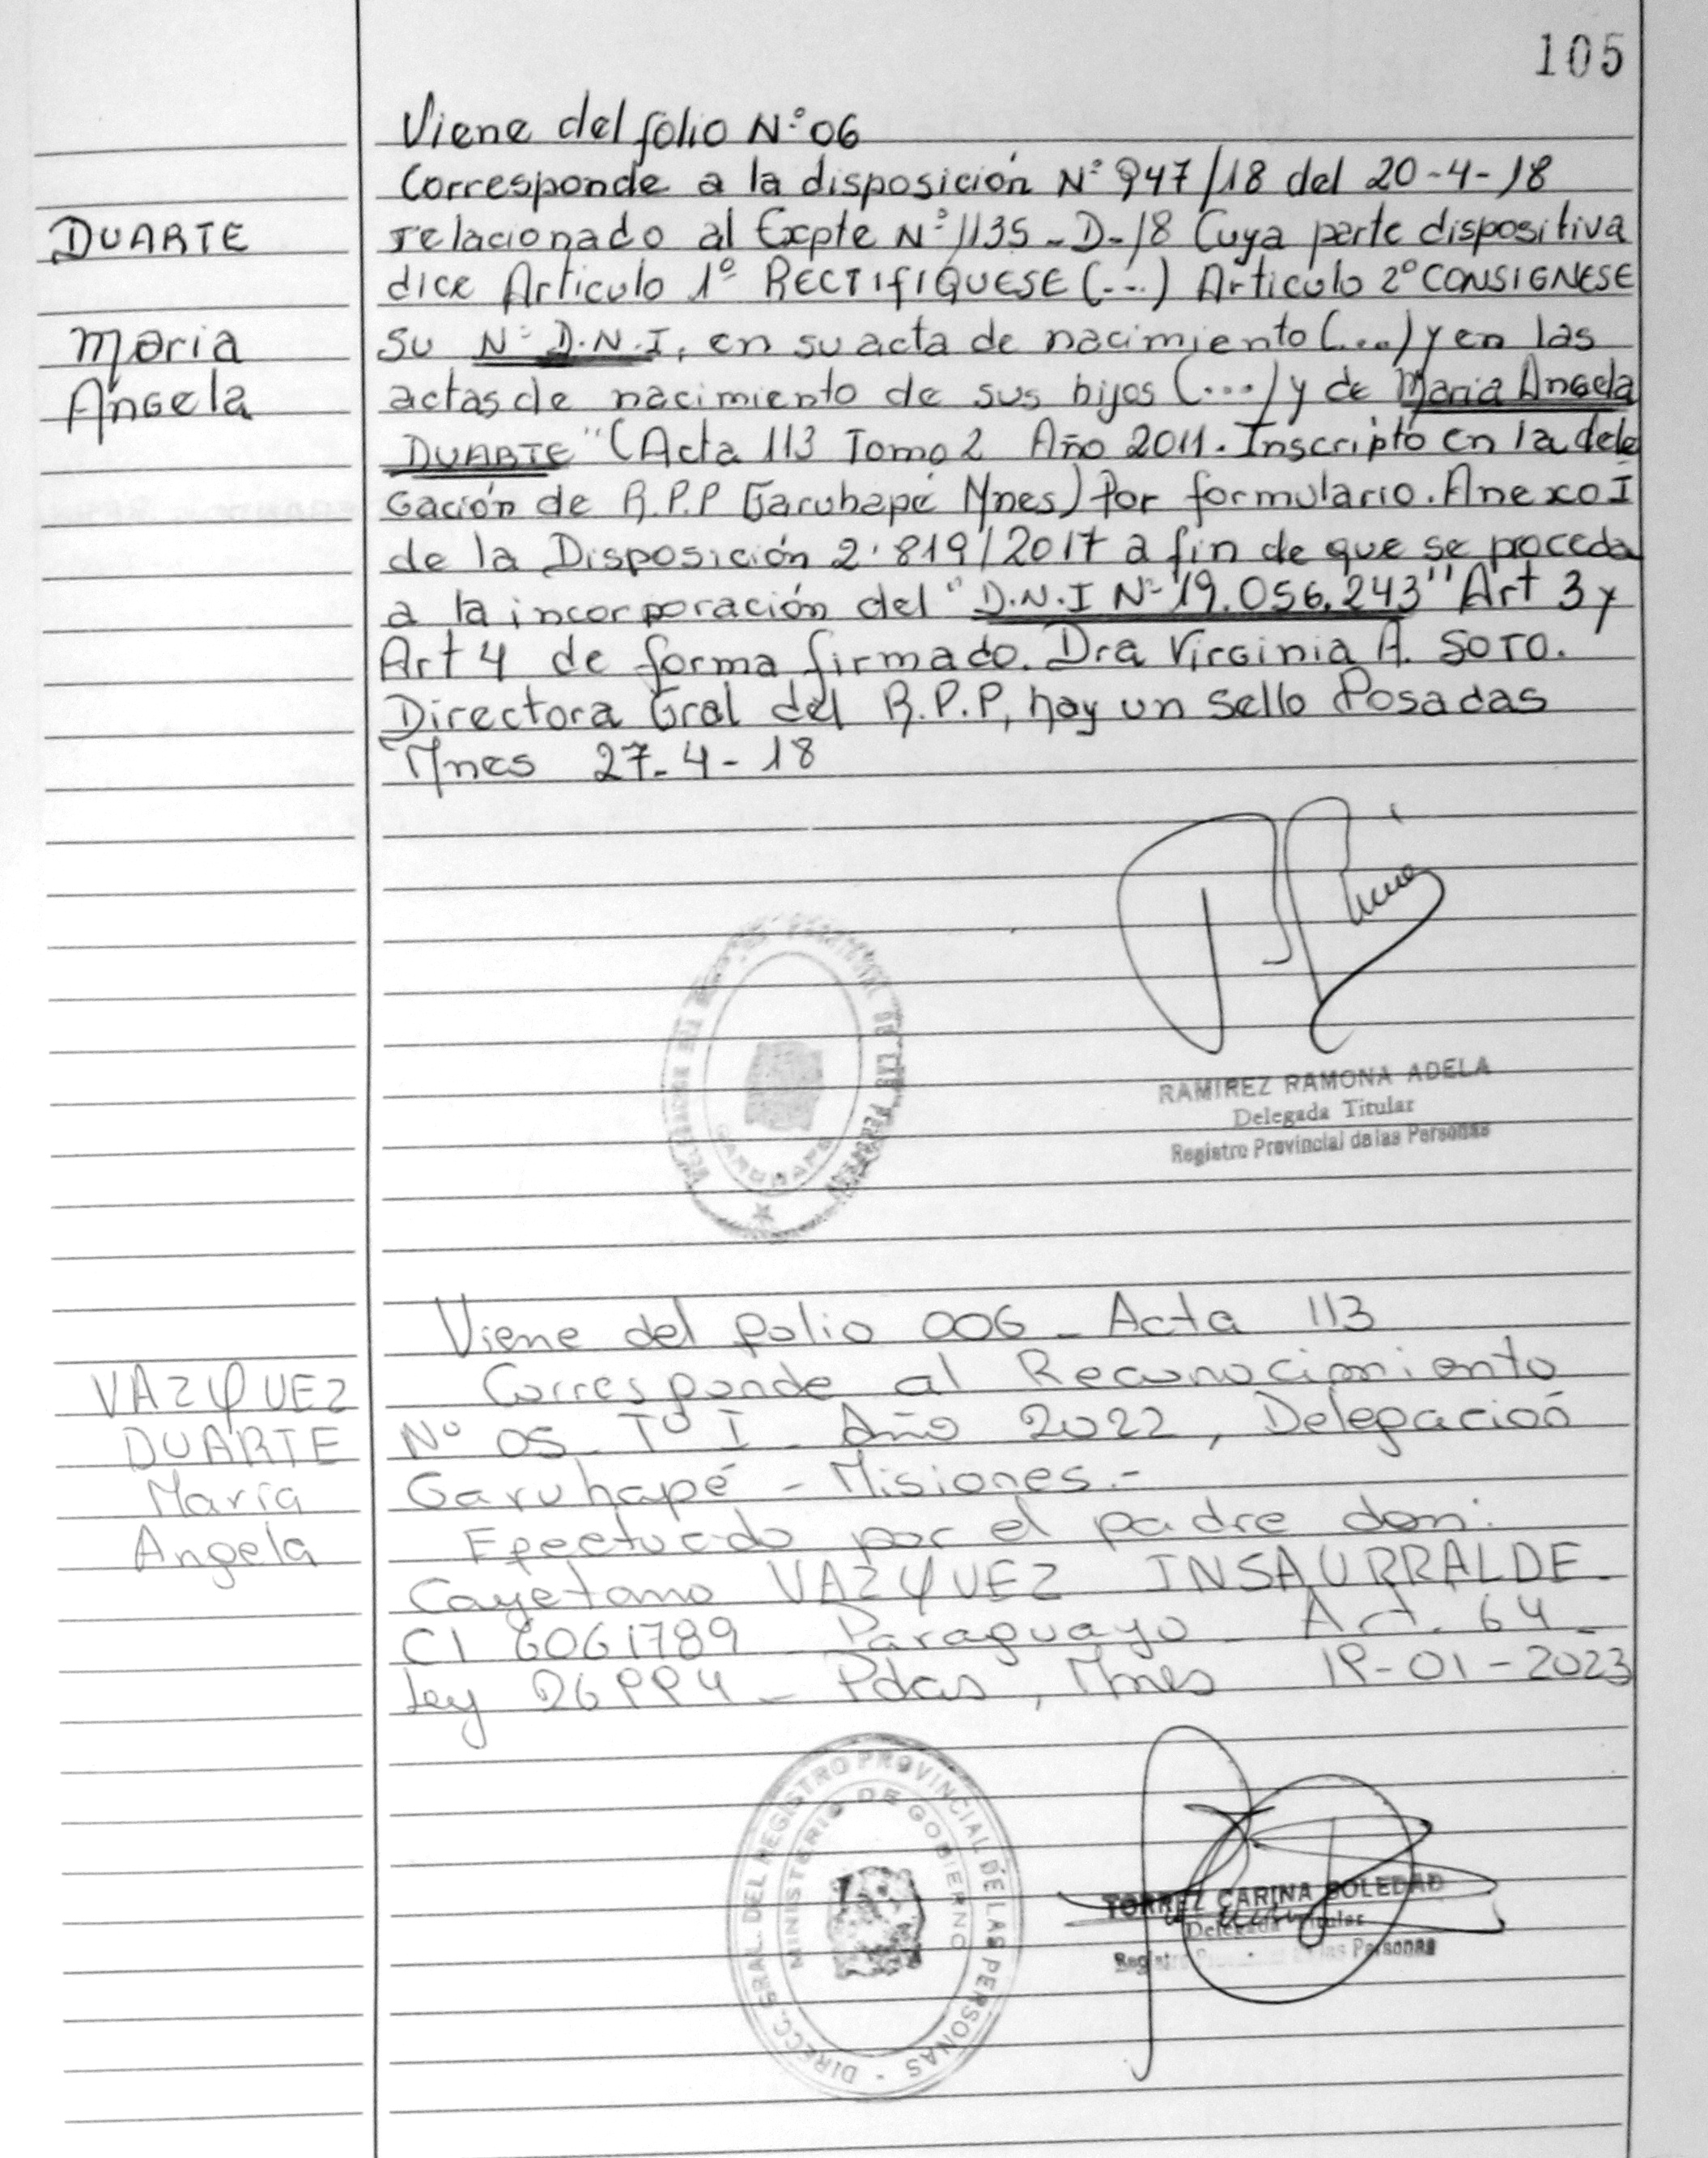 105
Viene del folio N° 06
Corresponde a la disposición N° 947/18 del 20-4-18
DUARTE
relacionado al Expte N° 1135-D-18 Cuya parte dispositiva
dice Articulo 1° RECTIFIQUESE (...) Articulo 2° CONSIGNESE
Maria
su N° D.N.I, en su acta de nacimiento (...) y en las
Angela
actas de nacimiento de sus hijos (...) y de Maria Angela
DUARTE" (Acta 113 Tomo 2 Año 2011. Inscripto en la dele
gación de R.P.P Garuhapé Mnes) Por formulario. Anexo I
de la Disposición 2.819/2017 a fin de que se proceda
a la incorporación del "D.N.I N° 19.056.243" Art 3 y
Art 4 de forma firmado. Dra Virginia A. SOTO.
Directora Gral del R.P.P, hay un sello Posadas
Mnes 27-4-18
DE LAS PERSONAS
GARUHAPE
RAMIREZ RAMONA ADELA
Delegada Titular
Registro Provincial de las Personas
Viene del folio 006 - Acta 113
VAZQUEZ
Corresponde al Reconocimiento
DUARTE
N° 05 - T° I - Año 2022, Delegación
Maria
Garuhapé - Misiones.-
Angela
Efectuado por el padre don:
Cayetano VAZQUEZ INSAURRALDE -
CI 6061789 Paraguayo - Art. 64 -
Ley 26994 - Pdas, Mnes 19-01-2023
DIRECC. GRAL. DEL REGISTRO PROVINCIAL DE LAS PERSONAS -
MINISTERIO DE GOBIERNO
TORREZ CARINA SOLEDAD
Delegada Titular
Registro Provincial de las Personas